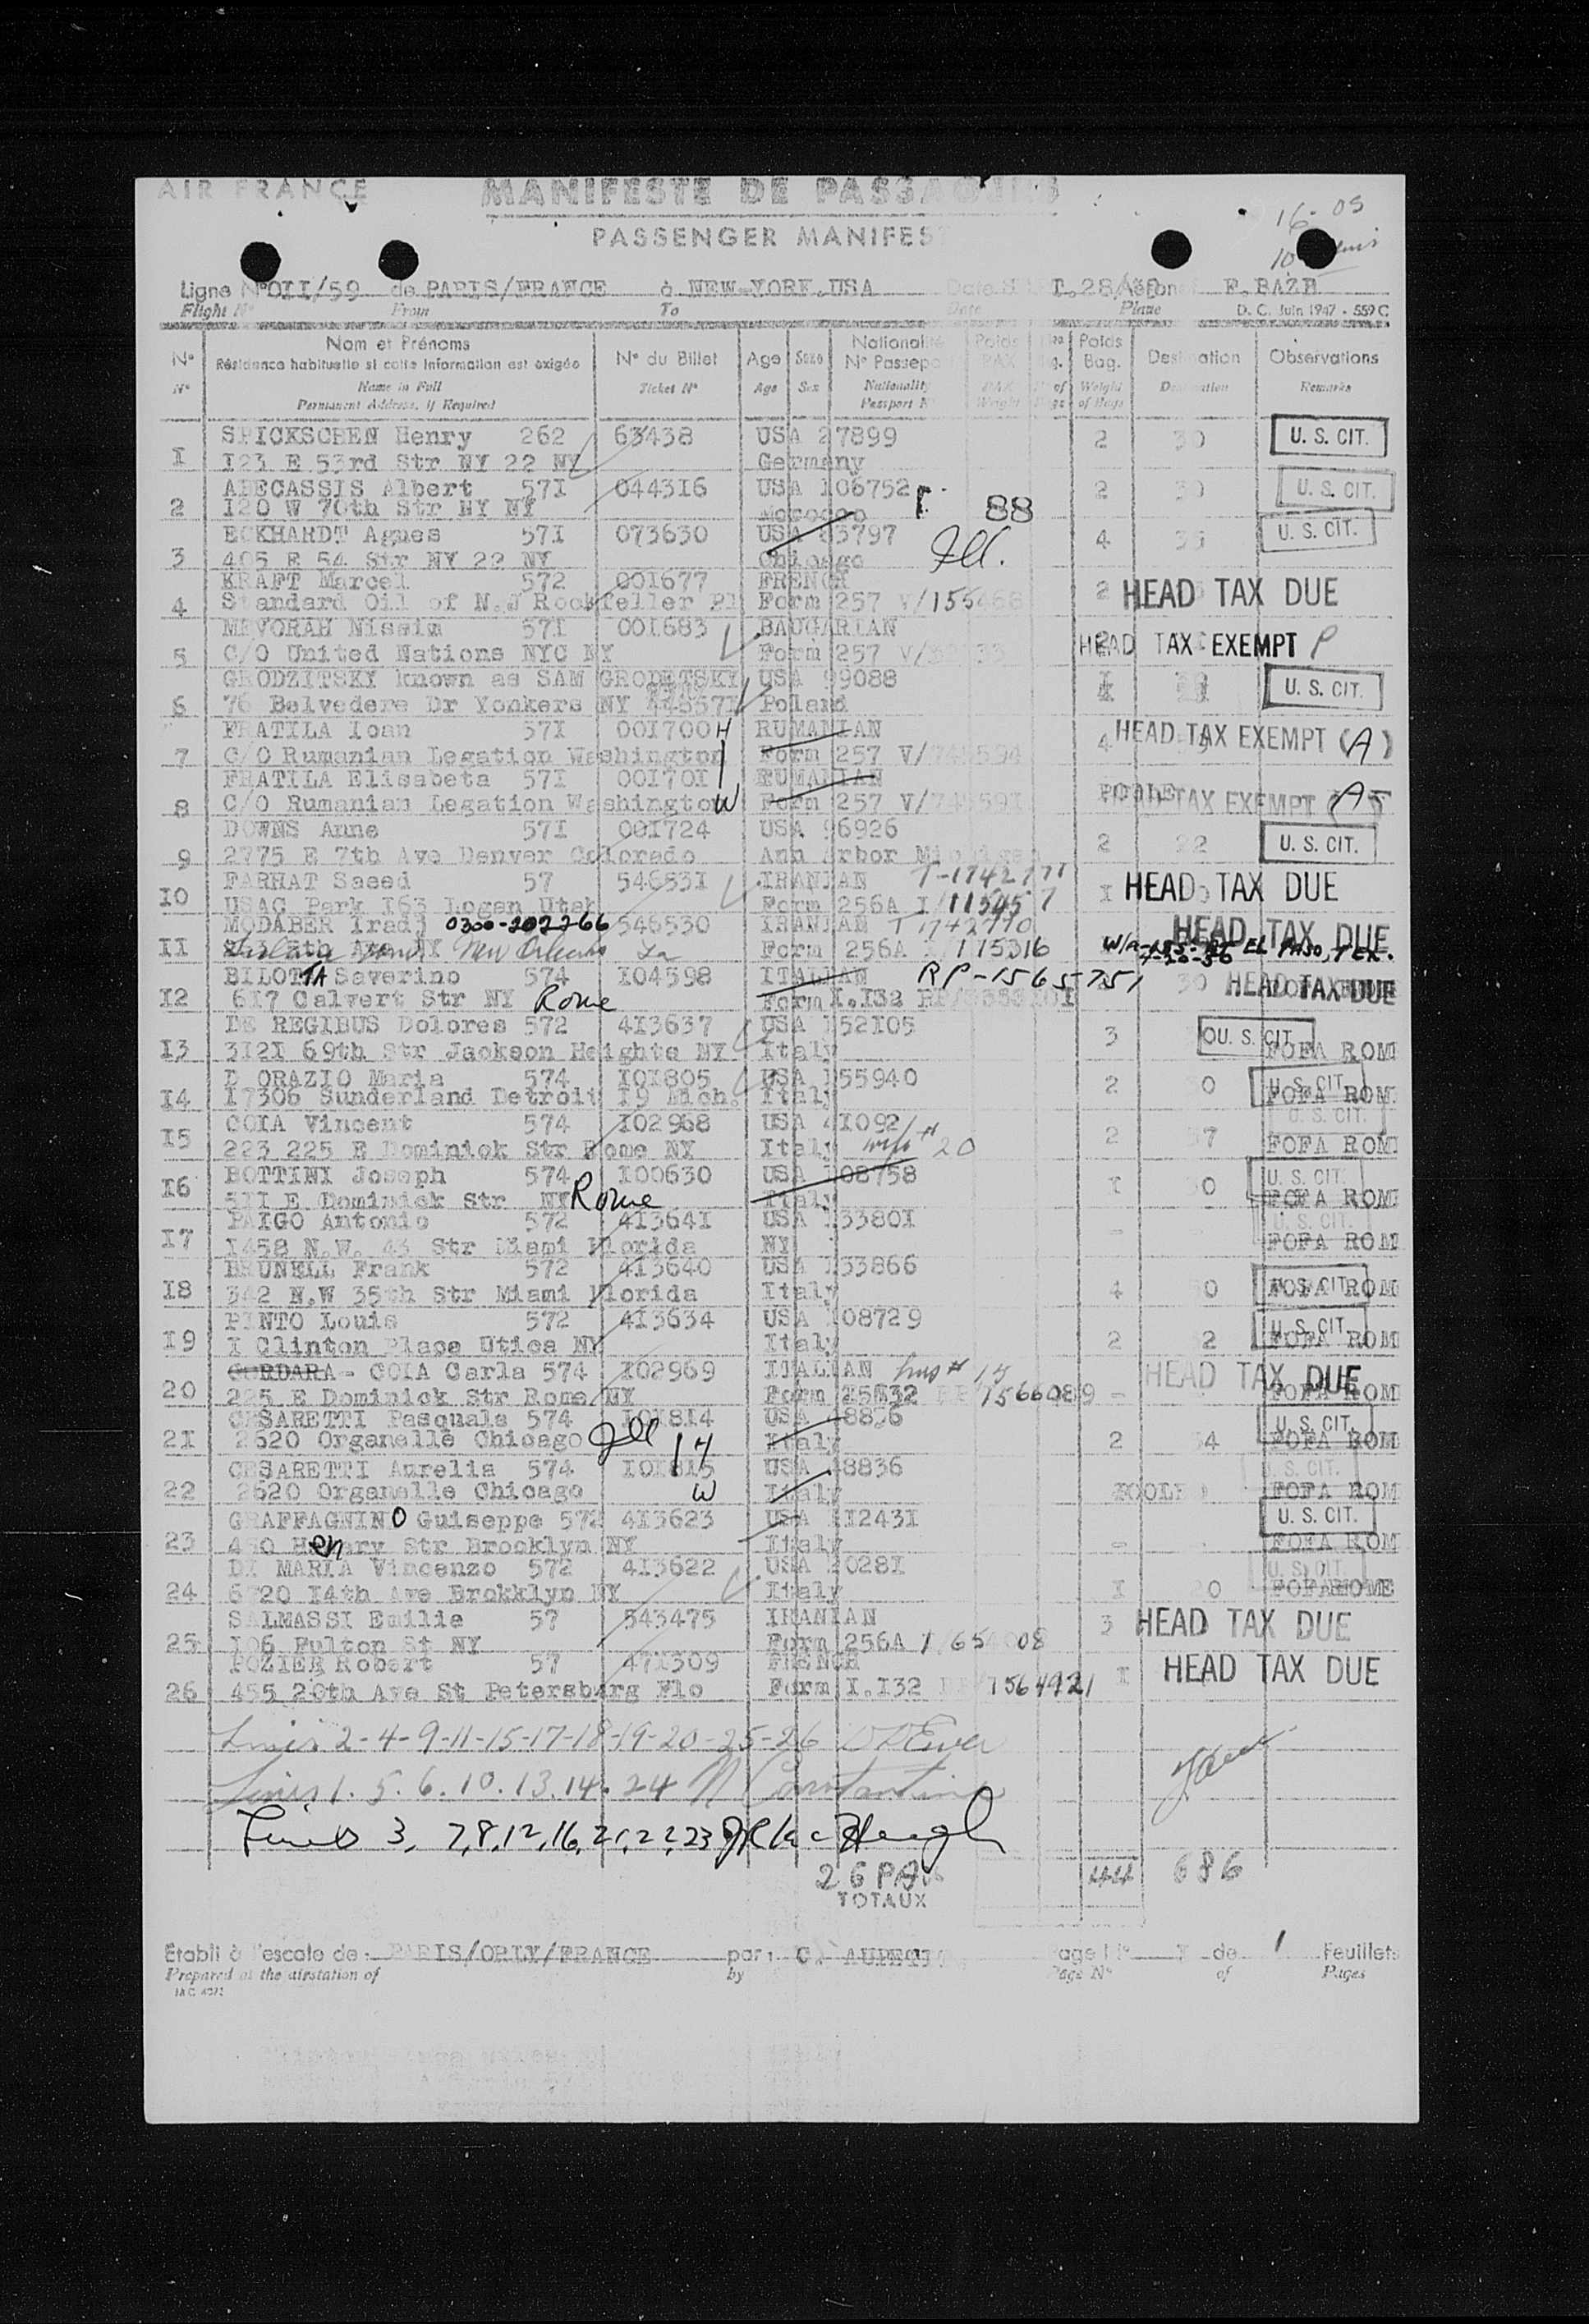 AIR FRANCE
MANIFESTE DE PASSAGERS
PASSENGER MANIFEST
16-05
Ligne N° OII/59 de PARIS/FRANCE à NEW-YORK.USA Date 28 Avion F.BAZB
Flight N° From To Date Plane D. C. Juin 1947 - 559 C
N° Nom et Prénoms N° du Billet Age Sexe Nationalité Poids Poids Destination Observations
Résidence habituelle si cette information est exigée N° Passep PAX Bag.
N° Name in Full Ticket N° Age Sex Nationality PAX N° of Weight Destination Remarks
Permanent Address, if Required Passport N° Weight Bags of Bags
SPICKSCHEN Henry 262 63438 USA 27899 2 30 U. S. CIT.
I I23 E 53rd Str NY 22 NY Germany
ABECASSIS Albert 57I 0443I6 USA 106752 2 30 U. S. CIT.
2 I20 W 70th Str NY NY Morocco 88
ECKHARDT Agnes 57I 073630 USA 83797 4 U. S. CIT.
3 405 E 54 Str NY 22 NY Chicago Ill.
KRAFT Marcel 572 00I677 FRENCH 2 HEAD TAX DUE
4 Standard Oil of N.J Rockfeller Pl Form 257 V/155468
MEVORAH Nissim 57I 00I683 BAUGARIAN HEAD TAX EXEMPT P
5 C/O United Nations NYC NY Form 257 V/
GRODZITSKY known as SAM GRODETSKY USA 99088 U. S. CIT.
6 76 Belvedere Dr Yonkers NY 44857I Poland
FRATILA Ioan 57I 00I700 H RUMANIAN 4 HEAD TAX EXEMPT (A)
7 C/O Rumanian Legation Washington Form 257 V/748594
FRATILA Elisabeta 57I 00I70I RUMANIAN POOLE
8 C/O Rumanian Legation Washington W Form 257 V/74859I TAX EXEMPT (A)
DOWNS Anne 57I 00I724 USA 96926 2 22 U. S. CIT.
9 2775 E 7th Ave Denver Colorado Ann Arbor Michigan
FARHAT Saeed 57 54653I IRANIAN I HEAD TAX DUE
I0 USAC Park I63 Logan Utah Form 256A I/
MODABER Iradj 0300-202266 546530 IRANIAN T 1742770 HEAD TAX DUE
II New Orleans La Form 256A 115316 EL PASO, TEX.
BILOTTA Saverino 574 I04598 ITALIAN RP-1565751 30 HEAD TAX DUE
I2 6I7 Calvert Str NY Rome Form I.I32
DE REGIBUS Dolores 572 4I3637 USA I52I05 3 U. S. CIT
I3 3I2I 69th Str Jackson Heights NY Italy FOFA ROM
D ORAZIO Maria 574 I0I805 USA I55940 2 U. S. CIT.
I4 I7306 Sunderland Detroit I9 Mich. Italy FOFA ROM
COIA Vincent 574 I02968 USA 4I092 2 U. S. CIT.
I5 223 225 E Dominick Str Rome NY Italy # 20 FOFA ROM
BOTTINI Joseph 574 I00630 USA I08758 I U. S. CIT.
I6 5II E Dominick Str NY Rome Italy FOFA ROM
PAIGO Antonio 572 4I364I USA I3380I - U. S. CIT.
I7 I458 N.W. 43 Str Miami Florida NY FOFA ROM
BRUNELL Frank 572 4I3640 USA I33866 U. S. CIT.
I8 342 N.W 35th Str Miami Florida Italy 4 FOFA ROM
PINTO Louis 572 4I3634 USA I08729 U. S. CIT.
I9 I Clinton Place Utica NY Italy 2 FOFA ROM
CORDARA- COIA Carla 574 I02969 ITALIAN # 15 HEAD TAX DUE
20 225 E Dominick Str Rome NY Form 1566089 - FOFA ROM
CESARETTI Pasquale 574 I0I8I4 USA U. S. CIT.
2I 2620 Organelle Chicago Ill H Italy 2 FOFA ROM
CESARETTI Aurelia 574 I0I8I5 USA 48836 U. S. CIT.
22 2620 Organelle Chicago W Italy FOFA ROM
GRAFFAGNINO Guiseppe 572 4I3623 USA II243I U. S. CIT.
23 Henry Str Brooklyn NY Italy - FOFA ROM
DI MARIA Vincenzo 572 4I3622 USA 2028I U. S. CIT.
24 6720 I4th Ave Brokklyn NY Italy I FOFA ROME
SALMASSI Emilie 57 543475 IRANIAN 3 HEAD TAX DUE
25 I06 Fulton St NY Form 256A
POZIER Robert 57 47I309 FRENCH I HEAD TAX DUE
26 455 20th Ave St Petersburg Flo Form I.I32 1564921
Lines 2-4-9-11-15-17-18-19-20-25-26
Lines 1. 5. 6. 10. 13. 14. 24 N Constantine
Lines 3, 7,8,12,16,21,22,23
26 PAX 44 686
TOTAUX
Etabli à l'escale de PARIS/ORLY/FRANCE par C. AUPETIT Page N° I de 1 Feuillets
Prepared at the airstation of by Page N° of Pages